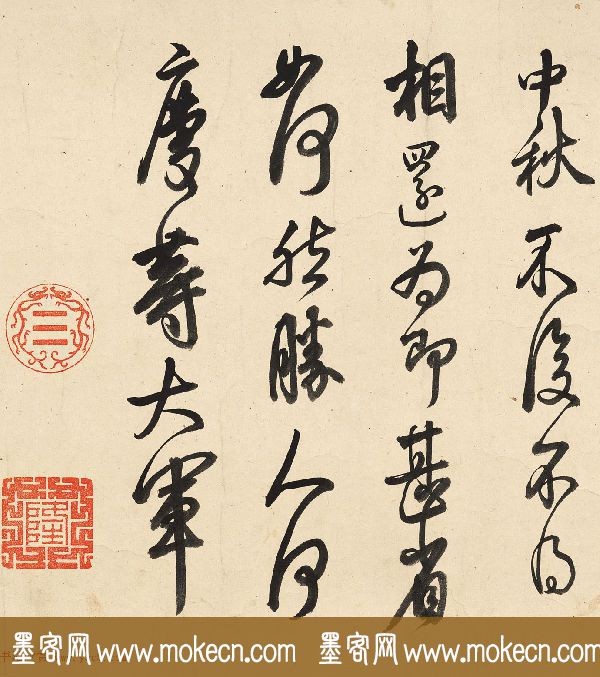 中秋不復不得
相還為即甚省
如何然勝人何
慶等大軍
隆
墨客网 www.mokecn.com 墨客网 www.mokecn.com